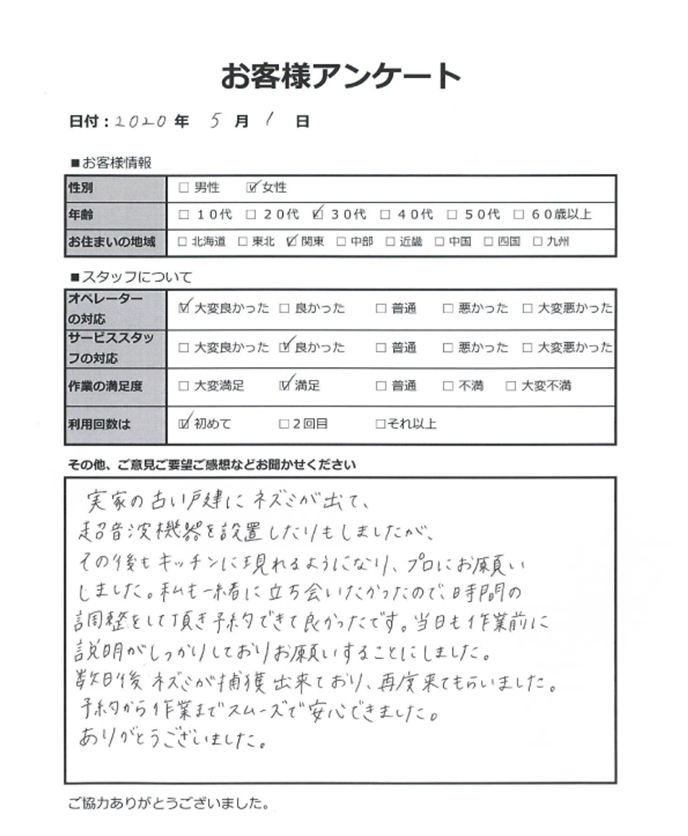 お客様アンケート
日付：2020 年 5 月 1 日
■お客様情報
性別 □ 男性 ☑ 女性
年齢 □ 10代 □ 20代 ☑ 30代 □ 40代 □ 50代 □ 60歳以上
お住まいの地域 □ 北海道 □ 東北 ☑ 関東 □ 中部 □ 近畿 □ 中国 □ 四国 □ 九州
■スタッフについて
オペレーター
の対応 ☑ 大変良かった □ 良かった □ 普通 □ 悪かった □ 大変悪かった
サービススタッ
フの対応 □ 大変良かった ☑ 良かった □ 普通 □ 悪かった □ 大変悪かった
作業の満足度 □ 大変満足 ☑ 満足 □ 普通 □ 不満 □ 大変不満
利用回数は ☑ 初めて □ 2回目 □それ以上
その他、ご意見ご要望ご感想などお聞かせください
実家の古い戸建にネズミが出て、
超音波機器を設置したりもしましたが、
その後もキッチンに現れるようになり、プロにお願い
しました。私も一緒に立ち会いたかったので、日時間の
調整をして頂き予約できて良かったです。当日も作業前に
説明がしっかりしておりお願いすることにしました。
数日後ネズミが捕獲出来ており、再度来てもらいました。
予約から作業までスムーズで安心できました。
ありがとうございました。
ご協力ありがとうございました。